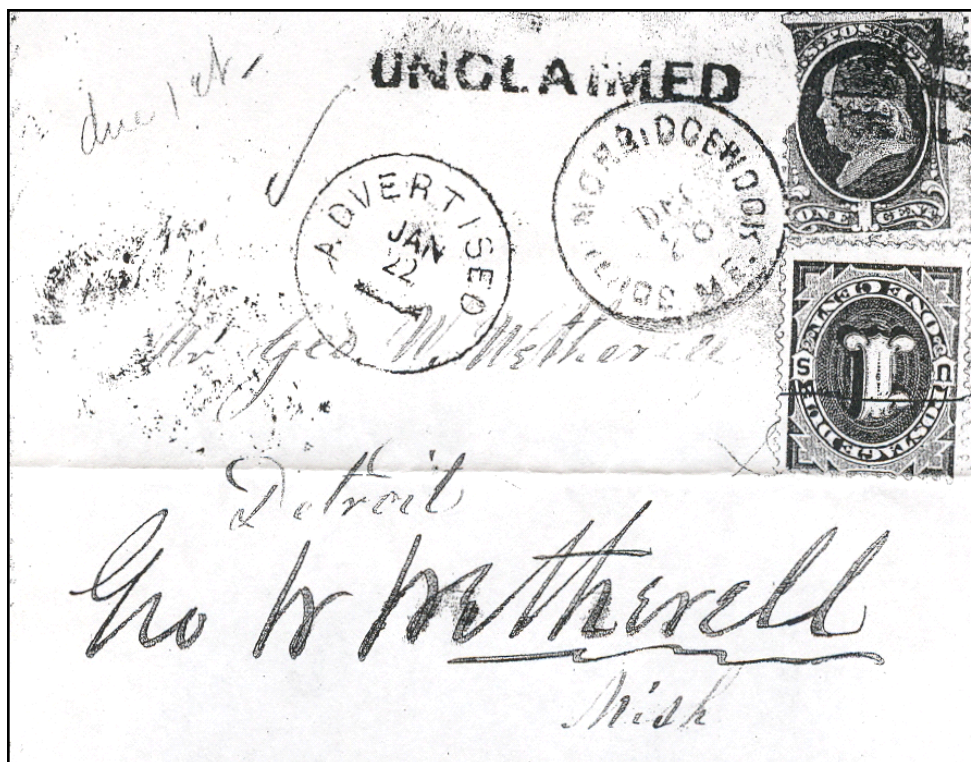 due 1 ct.
UNCLAIMED
ADVERTISED
JAN
22
NORRIDGEWOCK
U.S. POSTAGE
ONE 1 CENT
ONE CENT
1
U S
POSTAGE DUE
Mr Geo. W. Wetherell
Detroit
Geo W Wetherell
Mich